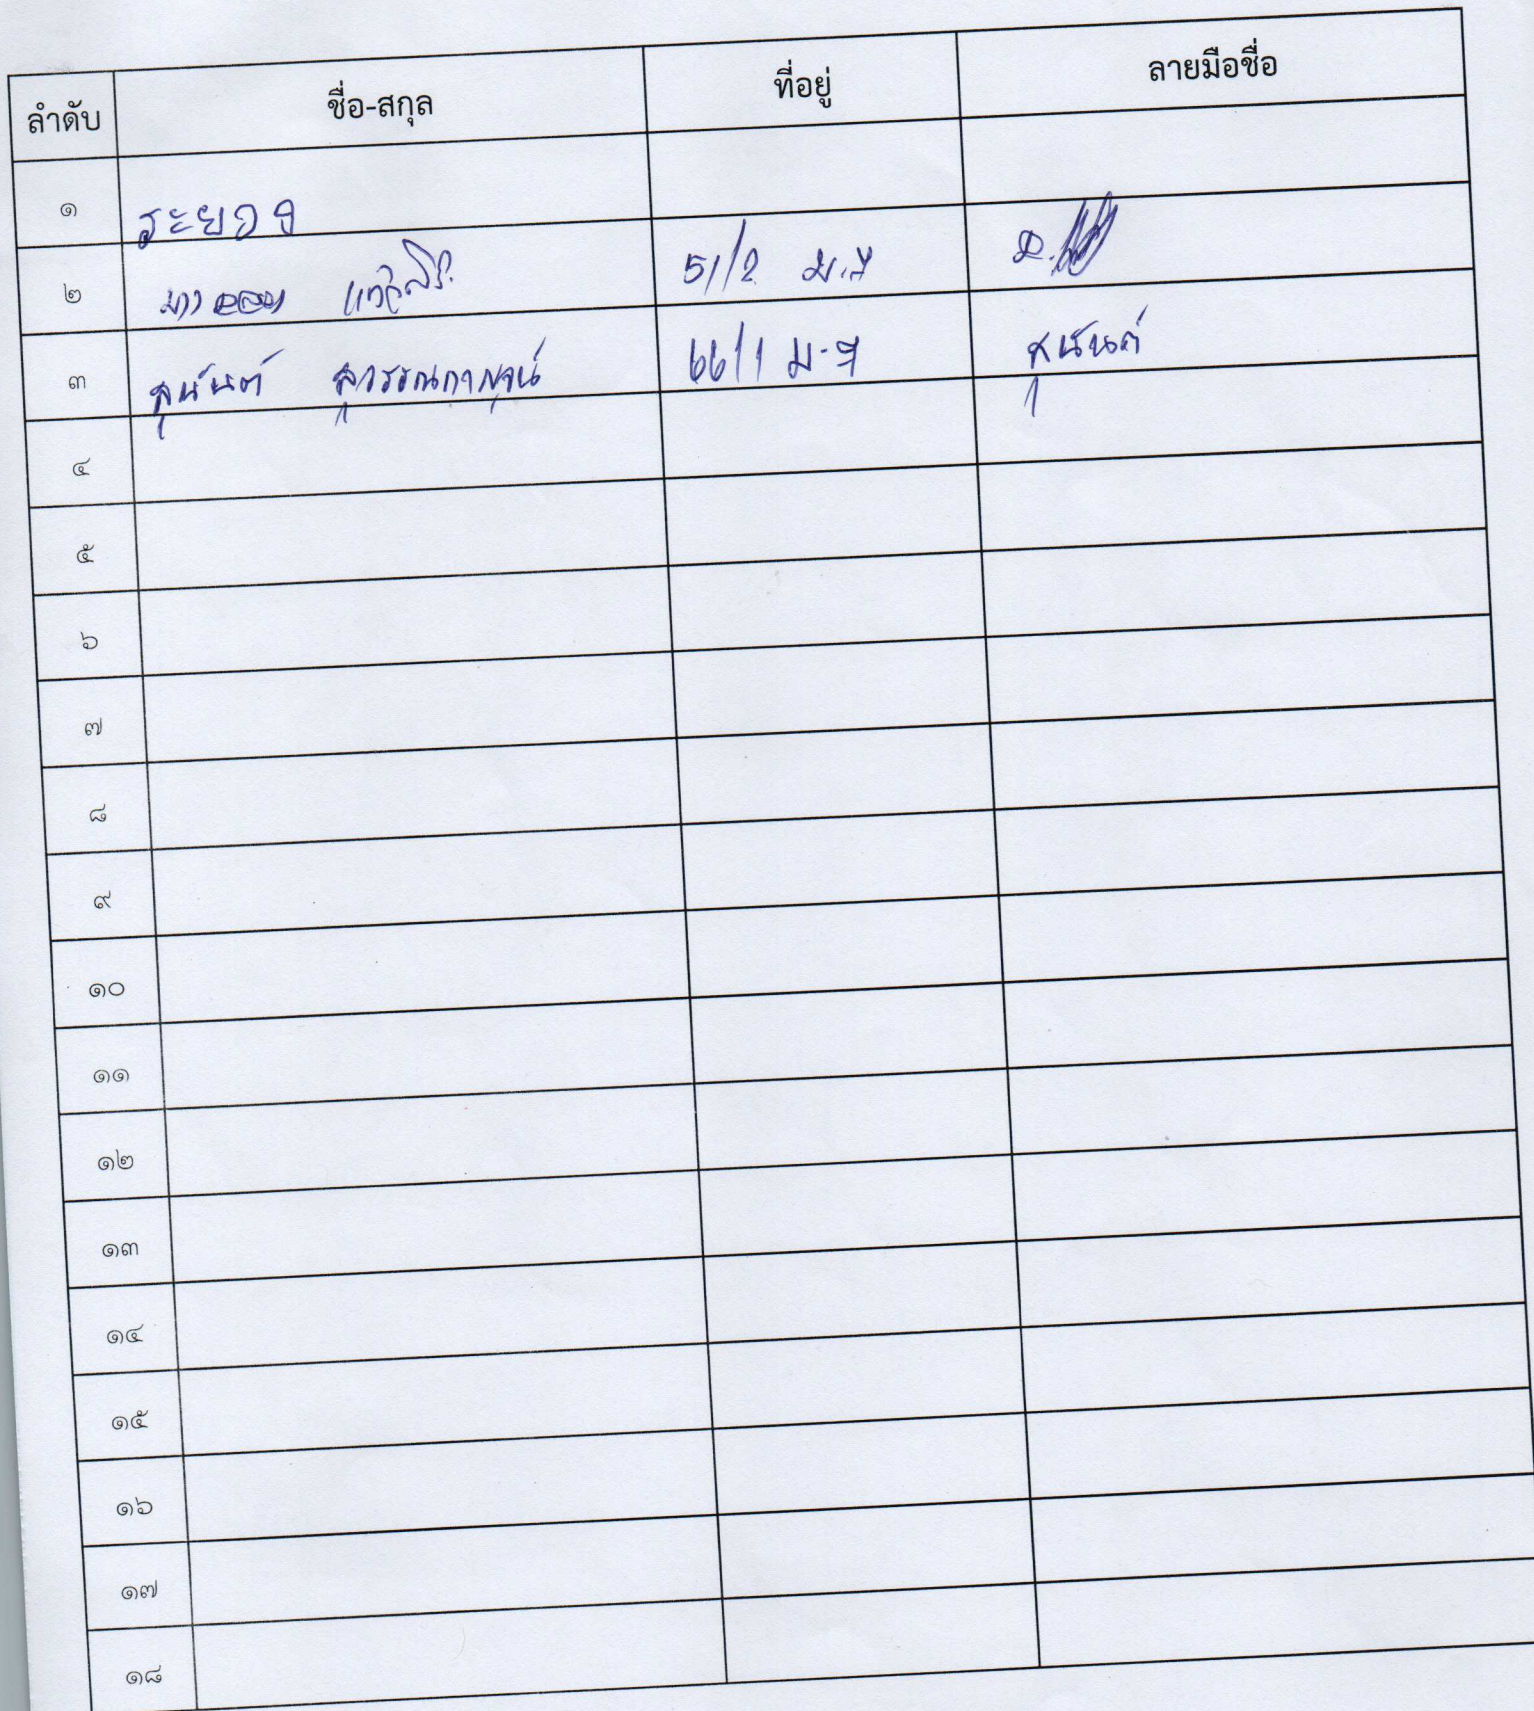 ลำดับ ชื่อ-สกุล ที่อยู่ ลายมือชื่อ
๑ ระยอง
๒ 51/2 ม.7
๓ สุนันต์ สุวรรณกาญจน์ 66/1 ม.7 สุนันต์
๔
๕
๖
๗
๘
๙
๑๐
๑๑
๑๒
๑๓
๑๔
๑๕
๑๖
๑๗
๑๘